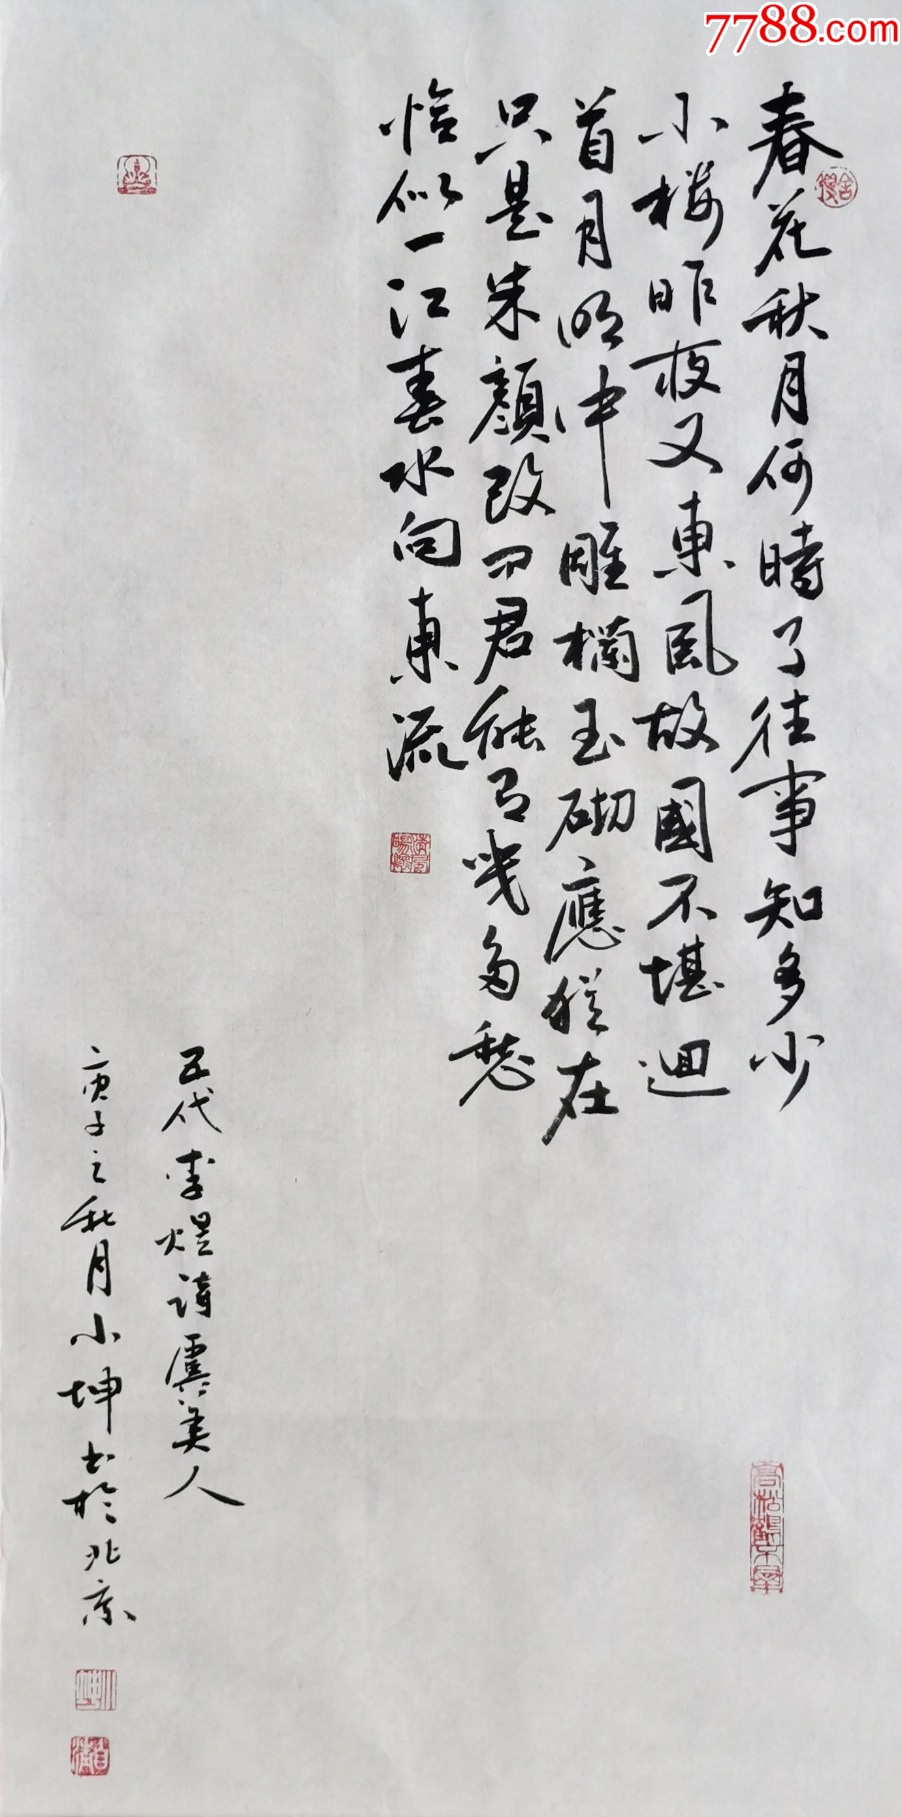 7788.com
春花秋月何時了往事知多少
小楼昨夜又東風故國不堪迴
首月明中雕欄玉砌應猶在
只是朱顏改问君能有幾多愁
恰似一江春水向東流
五代李煜詩虞美人
庚子之秋月小坤书於北京